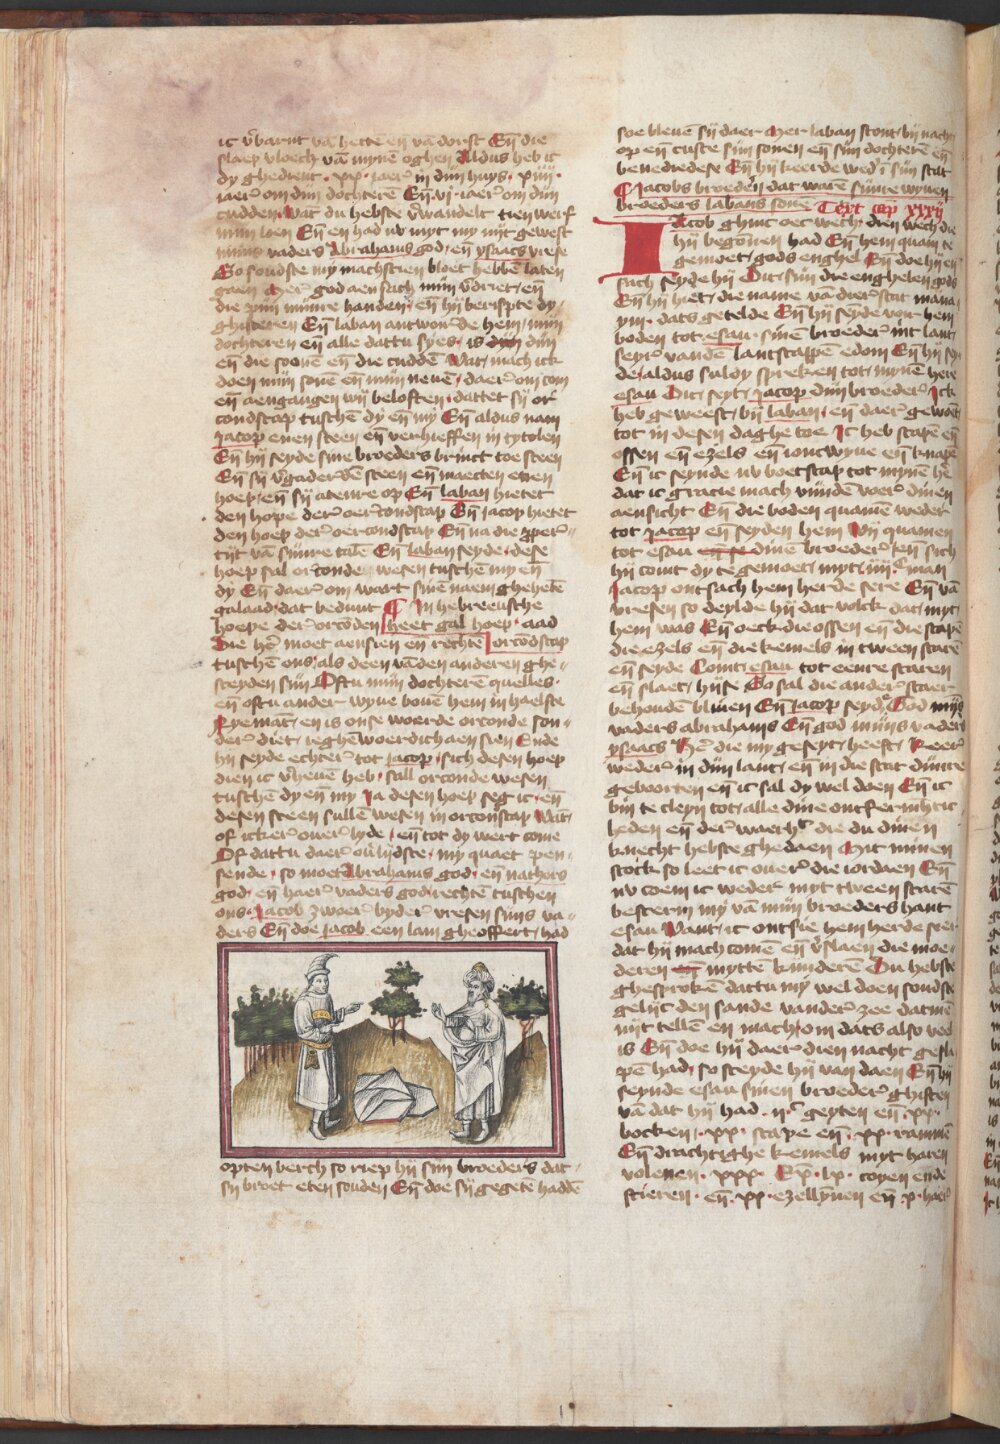 ic v̓barnt vā hettē eñ vā dorst Eñ die
slaep vloech vā mynē oghen Aldus heb ic
dy ghedient · xx · iaer̓ in dijn huys · xiiij ·
iaer̓ om dijn dochterē Eñ · vi · iaer̓ om dijn
cudden · Wat du hebste v̓wandelt tien werf
mijn loen Eñ en had nv myt my nijt gewest
mijns vaders Abrahams god · eñ ysaacs vrese
So soudste my machscien bloet hebbē laten
gaen Mer̓ god aensach mijn v̓driet · eñ
die pijn mijnre handen · eñ hij berispte dy ·
ghisteren Eñ laban antwoer̓de hem / mijn
dochteren eñ alle dattu syes · is dijn
eñ die soonē eñ die cuddē Wat · mach ick
doen mijn sonē eñ mijn nevē · daer̓ om com
eñ aengangen wij beloften · dattet sij or̓
condscap tusschē dy eñ my Eñ aldus nam
Jacop enen steen eñ verhieffen in tytolen
Eñ hij seyde sine broeders brinct toe steen
Eñ sij v̓gader̓dē steen eñ maecten enen
hoep · eñ sij atenre op Eñ laban hietet
den hope der̓ oer̓condscap Eñ jacop hietet
den hoep der̓ oer̓condscap Eñ na die pper̓ ·
tijt vā sijnre talē Eñ laban seyde · dese
hoep sal or̓conde wesen tusschē my eñ
dy Eñ daer̓ om wart sinē naem ghehetē
galaad / dat beduut In hebreeusche
hoepe der̓ orcōden heet gal hoep · aad
Die he̓r moet aensien en rechtē orcōdscap
tusschē ons / als deen vāden anderen ghe =
sceyden sijn Oftu mijn dochterē quelles ·
eñ oftu ander wyne bouē hem in haelste
Nyemāt / en is onse woerde orconde son =
der̓ diet / ieghēwoerdich aen sien Ende
hij seyde echter̓ tot jacop · sich desen hoep
dien ic v̓heuē heb · sall orconde wesen
tusschē dy eñ my Ja desen hoep seg ic · eñ
desen steen sullē wesen in orcōnscap Wāt /
of icker̓ ouer̓ lyde / eñ tot dy wert come
Of dattu daer̓ ou̓lijdste · my quaet pen =
sende · so moet Abrahams god · eñ nathors
god · eñ haer̓ vaders god / rechtē tusschen
ons · Jacob zwoer̓ byder̓ vresen sijns va =
ders Eñ doe jacob een lam gheoffert / had
opten berch so riep hij sijn broeders dat ·
sij broet eten souden Eñ doe sij gegetē haddē
soe bleuē sij daer Mer laban stont bij nacht
op eñ custe sijn sonen eñ sijn dochterē eñ
benediedese Eñ hij keerde wed̓ ī sijn stat
Jacobs broeder̓ dat warē sijnre wyuen
broeders labans sone Text cap̄ xxxij
Jacob ghinc oec wech · dien wech die
hij begonnen had Eñ hem quam te
gemoet / gods enghel Eñ doe hij en
sach seyde hij Dit / sijn die enghelen gods
Eñ hij hiet / die name vā dier̓ stat mana =
ym · dats getelde Eñ hij seyde voer hem
boden tot esau · sinē broeder̓ int lant /
seyr̓ vandē lantscappē edom Eñ hij sey
de / aldus suldy spreken tot / mynē here
esau Dit / seyt / jacop dijn broeder̓ Ick
heb geweest / bij laban · eñ daer̓ gewoēt
tot in desen daghe toe Ic heb scape eñ
ossen eñ ezels eñ ionc wyue eñ knapē
Eñ ic seynde nv boetscap tot mynē hē
dat ic gracie mach vijndē voer̓ dinen
aensicht Eñ die boden quamē weder
tot jacop eñ seyden hem Wij quamen
tot esau dinē broeder̓ / eñ sich
hij comt dy tegemoet / myt / iiij c man
Jacop ontsach hem herde sere Eñ vā
vresen so deylde hij dat volck dat / myt /
hem was Eñ oeck die ossen eñ die scapē
die ezels eñ die kemels in tween scarē
eñ seyde Comt / esau tot eenre scaren
eñ slaet / hijse So sal die ander̓ scaer
behoudē bliuen Eñ jacop seyde God mijs
vaders abrahams Eñ god mijns vaders
ysaacs He̓r die my geseyt / heeft / Keer̓
weder̓ in dijn lant / eñ in die stat dijnre
geboorten eñ ic sal dy wel doen Eñ ic
bin te cleyn tot / alle dine ontfermhertic
heden eñ der̓ waerh̓t die du dinen
knecht hebste ghedaen Mit minen
stock so leet ic ouer̓ die iordaen Eñ
nv coem ic weder myt tween scarē
bescerm my vā mijn broeders hant
esau Want / ic ontsie hem herde seer
dat hij mach comē eñ v̓slaen die moe =
deren myttē kinderē Du hebste
ghesprokē dattu my wel doen soudste
gelijc den sande vander̓ zee datmē
nijt tellē en mach / om dats also veel
is Eñ doe hij daer̓ dien nacht gesla
pē had / so sceyde hij van daen Eñ hij
seynde esau sinen broeder̓ ghiften
vā dat hij had · ij c geyten eñ · xx ·
bocken / · xx · scape eñ · xx · rammē
Eñ drachtighe kemels myt haren
volenen · xxx · Eñ · lx · coyen ende
stieren · eñ · xx · ezellynen eñ · x · haer̓